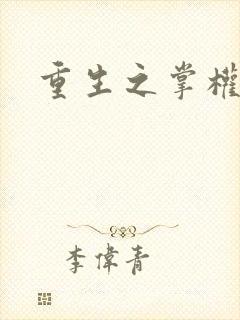 重生之掌權
李偉青